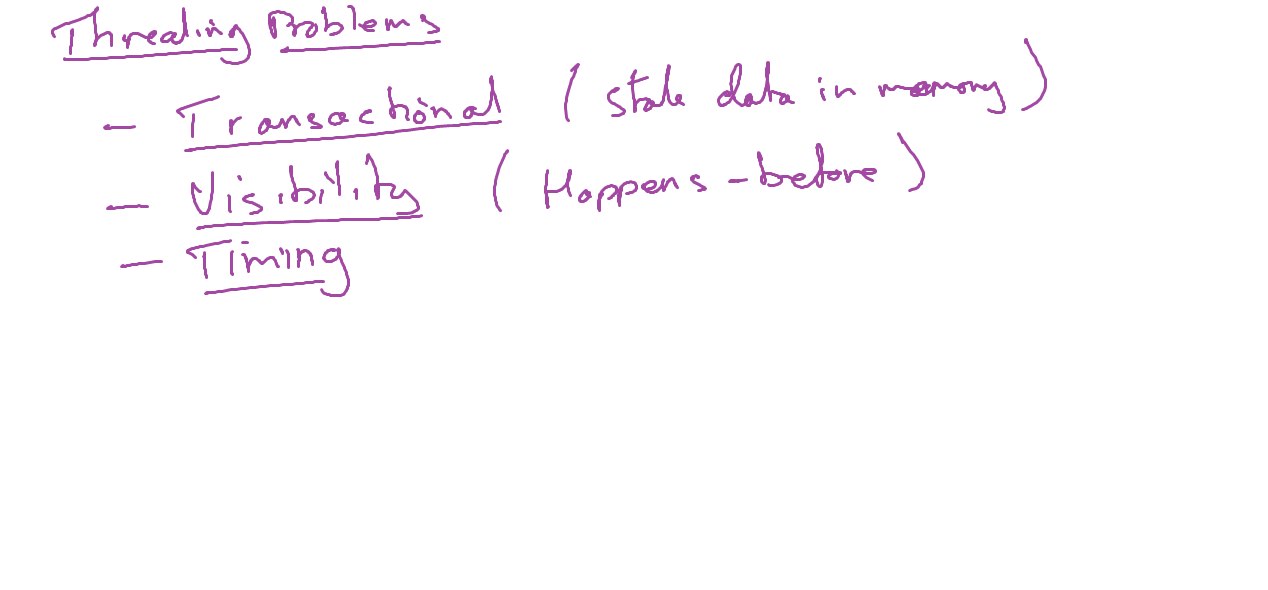 Threading Problems
- Transactional (stale data in memory)
- Visibility (Happens-before)
- Timing